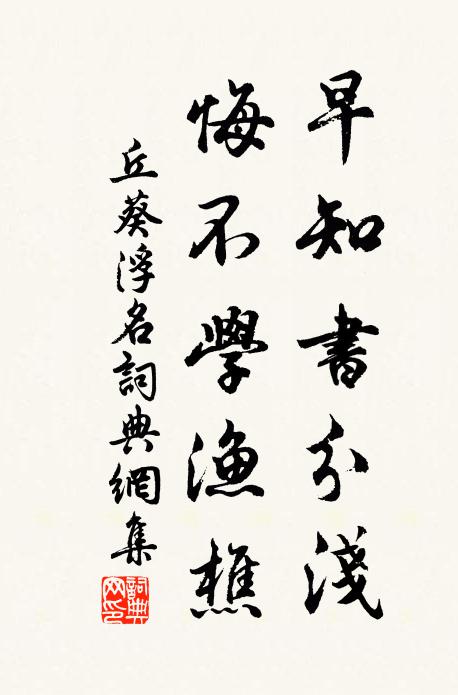 早知書分淺
悔不學漁樵
丘葵浮名詞典網集
詞典網印